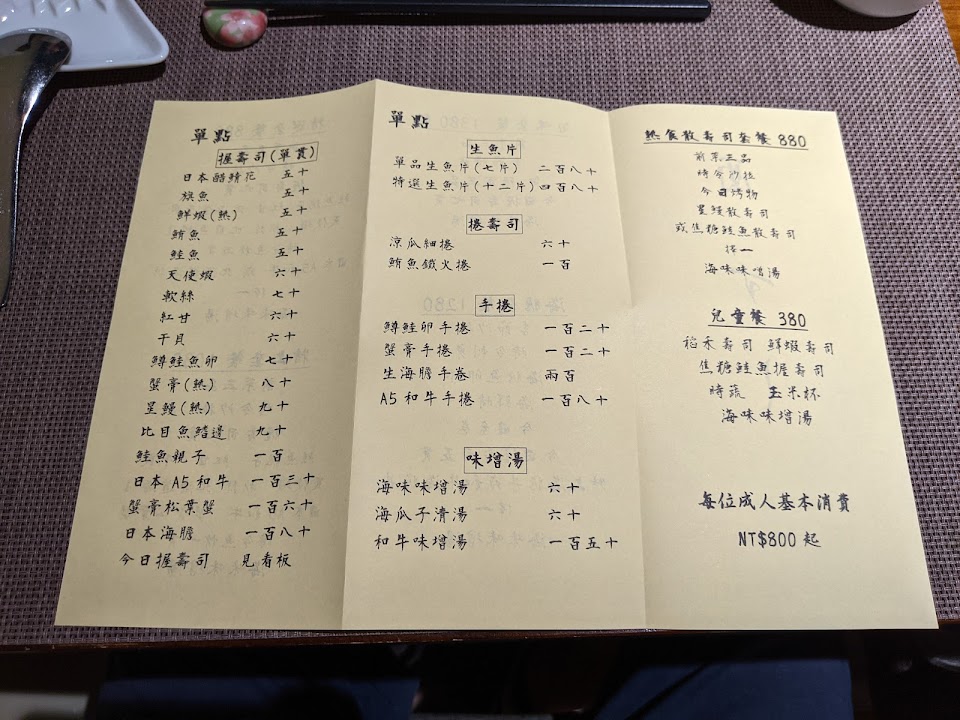 單點
握壽司(單貫)
日本醋鯖花 五十
旗魚 五十
鮮蝦(熟) 五十
鮪魚 五十
鮭魚 五十
天使蝦 六十
軟絲 七十
紅甘 六十
干貝 六十
鱒鮭魚卵 七十
蟹膏(熟) 八十
星鰻(熟) 九十
比目魚鰭邊 九十
鮭魚親子 一百
日本A5和牛 一百三十
蟹膏松葉蟹 一百六十
日本海膽 一百八十
今日握壽司 見看板
單點
生魚片
單品生魚片(七片) 二百八十
特選生魚片(十二片) 四百八十
捲壽司
涼瓜細捲 六十
鮪魚鐵火捲 一百
手捲
鱒鮭卵手捲 一百二十
蟹膏手捲 一百二十
生海膽手卷 兩百
A5和牛手捲 一百八十
味增湯
海味味增湯 六十
海瓜子清湯 六十
和牛味增湯 一百五十
熟食散壽司套餐 880
前菜三品
時令沙拉
今日烤物
星鰻散壽司
或焦糖鮭魚散壽司
擇一
海味味增湯
兒童餐 380
稻禾壽司 鮮蝦壽司
焦糖鮭魚握壽司
時蔬 玉米杯
海味味增湯
每位成人基本消費
NT$800起